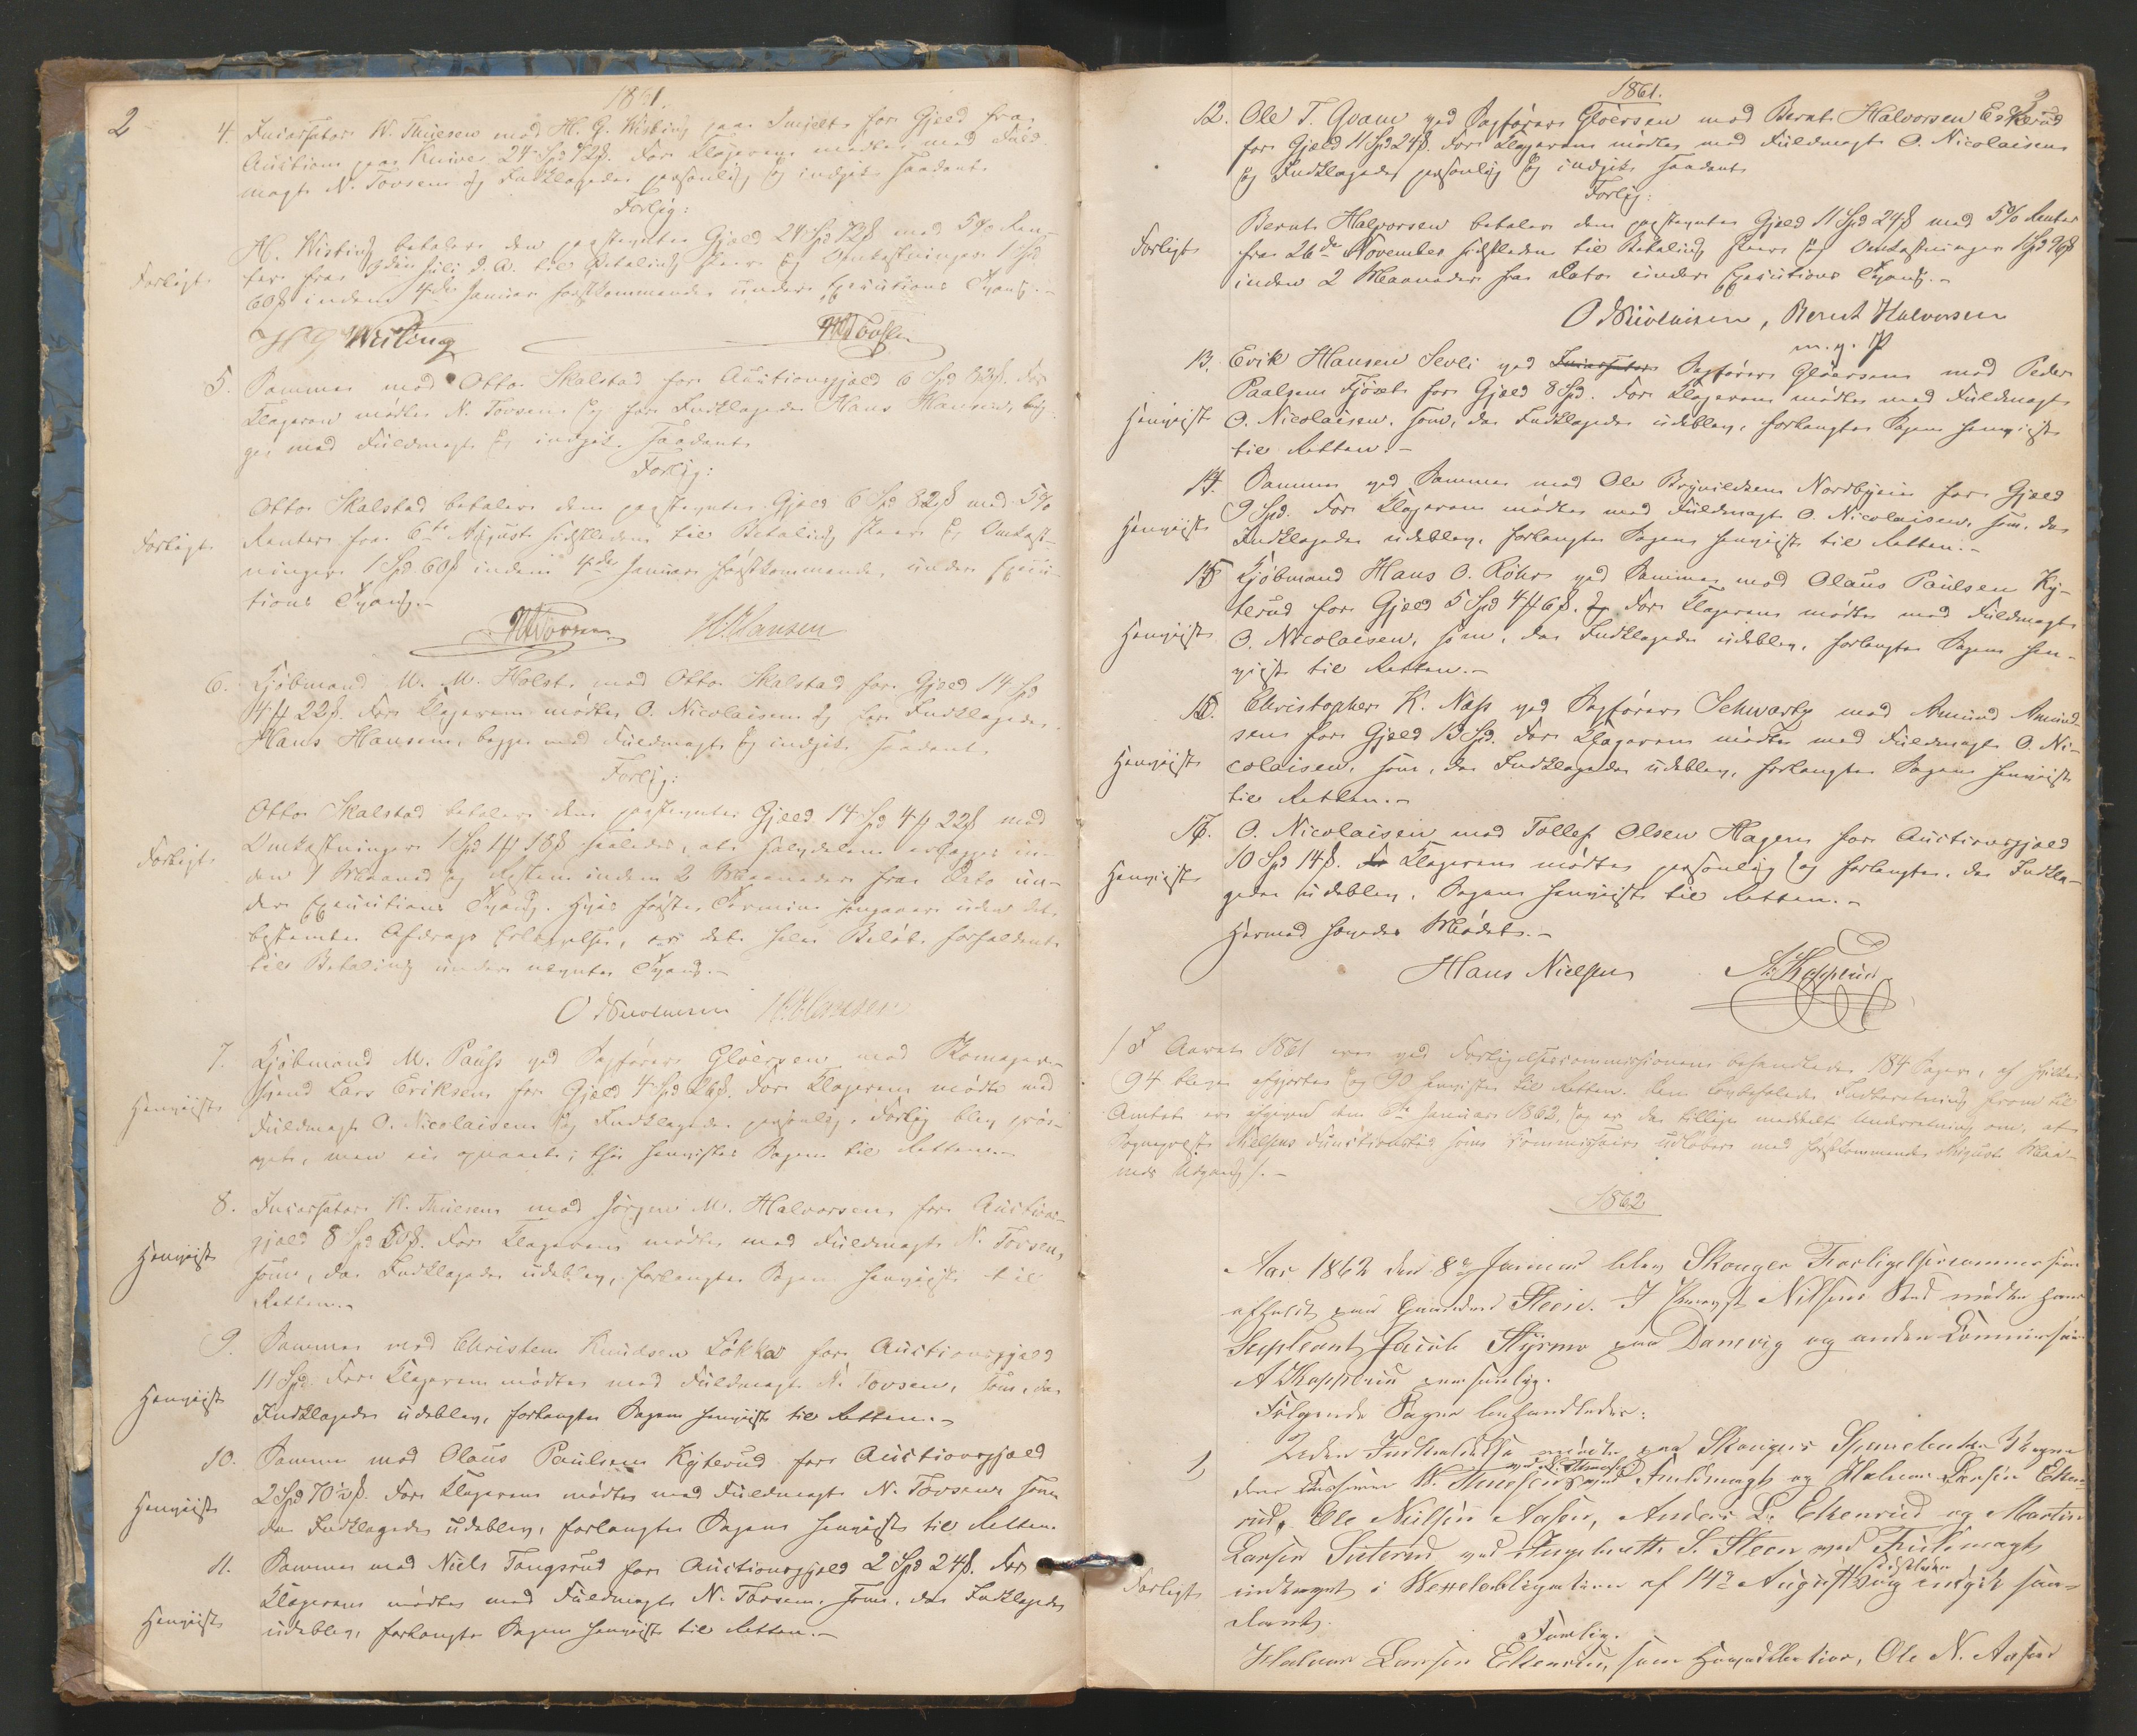 2
1861.
4. Incassator N. Thuesen mod H. G. Wisting paa Smidts for Gjæld fra
Auction paa Kniver 24 Spd 72 ß. For Klageren mødte med Fuld-
magt N. Tovsen og Indklagede personlig og indgik saadant
Forlig:
H. Wisting betaler den paastevnte Gjæld 24 Spd 72 ß med 5% Ren-
Forligt. ter fra den Juli d. A. til Betaling skeer og Omkostninger 1 Spd
60 ß inden 4de Januar førstkommende under Executions Tvang.-
H G Wisting N Tovsen
5. Samme mod Otto Skalstad for Auctionsgjæld 6 Spd 82 ß. For
Klageren mødte N. Tovsen og for Indklagede Hans Hansen, beg-
ge med Fuldmagt og indgik saadant
Forlig:
Otto Skalstad betaler den paastevnte Gjæld 6 Spd 82 ß med 5%
Forligt. Renter fra 6te August sidstleden til Betaling skeer og Omkost-
ninger 1 Spd 60 ß inden 4de Januar førstkommende, under Execu-
tions Tvang.-
N Tovsen H. Hansen
6. Kjøbmand M. M. Holst mod Otto Skalstad for Gjæld 14 Spd
4 # 22 ß. For Klageren mødte O. Nicolaisen og for Indklagede
Hans Hansen, begge med Fuldmagt og indgik saadant
Forlig:
Otto Skalstad betaler den paastevnte Gjæld 14 Spd 4 # 22 ß med
Omkostninger 1 Spd 1 # 18 ß saaledes, at Halvdelen erlægges in-
Forligt. den 1 Maaned og Resten inden 2 Maaneder fra Dato un-
der Executions Tvang. Hvis første Termin hengaaer uden det
bestemte Afdrags Erlæggelse, er det hele Beløb forfaldent
til Betaling under nævnte Tvang.-
O Nicolaisen H. Hansen
7. Kjøbmand M. Pauss ved Sagfører Gløersen mod Skomager-
svend Lars Eriksen for Gjæld 4 Spd 26 ß. For Klageren mødte med
Henviist Fuldmagt O. Nicolaisen og Indklagede personlig. Forlig blev prø-
vet, men ei opnaaet; thi henvistes Sagen til Retten.-
8. Incassator N. Thuesen mod Jørgen M. Halvorsen for Auctions-
gjæld 8 Spd 50 ß. For Klageren mødte med Fuldmagt N. Tovsen,
Henviist som, da Indklagede udeblev, forlangte Sagen henviist til
Retten.-
9. Samme mod Christen Knudsen Løkka for Auctionsgjæld
11 Spd. For Klageren mødte med Fuldmagt N. Tovsen, som, da
Henviist Indklagede udeblev, forlangte Sagen henviist til Retten.-
10. Samme mod Olaus Paulsen Kyterud for Auctionsgjæld
2 Spd 70½ ß. For Klageren mødte med Fuldmagt N. Tovsen som
Henviist da Indklagede udeblev, forlangte Sagen henviist til Retten.
11. Samme mod Niels Tangsrud for Auctionsgjæld 2 Spd 24 ß. For
Klageren mødte med Fuldmagt N. Tovsen, som, da Indklagede
Henviist udeblev, forlangte Sagen henviist til Retten.-
1861.
3
12. Ole T. Qvam ved Sagfører Gløersen mod Bernt Halvorsen Eskerud
for Gjæld 11 Spd 24 ß. For Klageren mødte med Fuldmagt O. Nicolaisen
og Indklagede personlig og indgik saadant
Forlig:
Bernt Halvorsen betaler den paastevnte Gjæld 11 Spd 24 ß med 5% Renter
Forligt fra 26de November sidstleden til Betaling skeer og Omkostninger 1 Spd 96 ß
inden 2 Maaneder fra Dato under Executions Tvang.-
O Nicolaisen, Bernt Halvorsen
m. p. P
13. Erik Hansen Sevli ved Incassator Sagfører Gløersen mod Peder
Paalsen Fjøset for Gjæld 8 Spd. For Klageren mødte med Fuldmagt
Henviist O. Nicolaisen, som, da Indklagede udeblev, forlangte Sagen henviist
til Retten.-
14. Samme ved Samme mod Ole Brynildsen Nordbyeie for Gjæld
9 Spd. For Klageren mødte med Fuldmagt O. Nicolaisen, som, da
Henviist Indklagede udeblev, forlangte Sagen henviist til Retten.-
15. Kjøbmand Hans O. Røhr ved Samme mod Olaus Paulsen Ky-
terud for Gjæld 5 Spd 4 # 6 ß. For Klageren mødte med Fuldmagt
Henviist O. Nicolaisen, som, da Indklagede udeblev, forlangte Sagen hen-
viist til Retten.-
16. Christopher K. Næss ved Sagfører Schwartz mod Amund Amund-
sen for Gjæld 13 Spd. For Klageren mødte med Fuldmagt O. Ni-
Henviist colaisen, som, da Indklagede udeblev, forlangte Sagen henviist
til Retten.-
17. O. Nicolaisen mod Tollef Olsen Hagen for Auctionsgjæld
10 Spd 14 ß. Klageren mødte personlig og forlangte, da Indkla-
Henviist gede udeblev, Sagen henviist til Retten.-
Hermed hævedes Mødet.-
Hans Nielsen A. Kopperud
/ I Aaret 1861 er ved Forligelsescommissionen behandlede 184 Sager, af hvilke
94 bleve afgjorte og 90 henviste til Retten. Den lovbefalede Indberetning herom til
Amtet er afgiven den 6te Januar 1862, og er der tillige meddelt Underretning om, at
Nielsens Functionstid som Commissair udløber med førstkommende August Maa-
neds Udgang /.-
1862
Aar 1862 den 8de Januar blev Skauger Forligelsescommission
afholdt paa Gaarden Steen. I Nielsens Sted mødte hans
Supleant Jacob Styrmo paa Damvig og anden Commissair
A Kopperud personlig.
Følgende Sager behandledes:
1, Uden Indkaldelse mødte paa Skaugers Sparebanks Vegne
dens Kasserer W. Thuesen ved N. Thuesen med Fuldmagt og Halvor Larsen Eken-
rud, Ole Nilsen Aasen, Anders L. Ekenrud og Martin
Larsen Sæterud ved Engebreth S. Steen med Fuldmagt
Forligt indbragt i Vexelobligation af 14de August sidstleden og indgik saa-
dant
Forlig.
Halvor Larsen Ekenrud, som Hoveddebitor, Ole N. Aasen